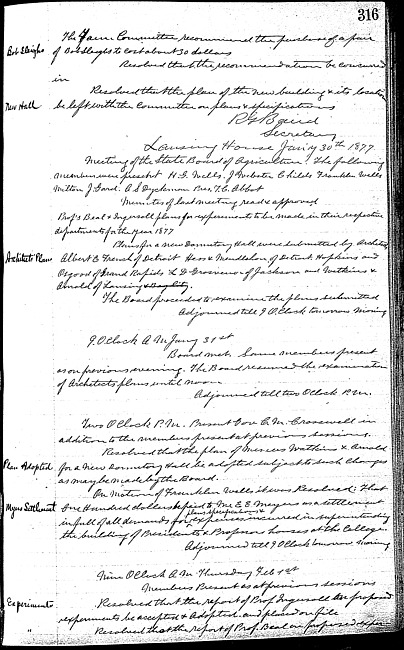 316
The Farm Committee recommend the purchase of a pair
Bob Sleighs of Bob Sleighs to cost about 30 dollars
Resolved that the recommendation be concured
in
Resolved that the plan of the new building & its location
New Hall be left with the Committee on plans & specifications
R G Baird
Secretary
Lansing House Jan'y 30th 1877
Meeting of the State Board of Agriculture. The following
members were present H. G. Wells, J Webster Childs Franklin Wells
Milton J. Gard. A. S. Dyckman Pres. T. C. Abbot
Minutes of last meeting read & approved
Prof's Beal & Ingersoll plans for experiments to be made in their respective
departments for the year 1877
Plans for a new Dormitory Hall were submitted by Architects
Architects Plans Albert E French of Detroit Hess & Mendleson of Detroit Hopkins and
Osgood of Grand Rapids L D Grosvenor of Jackson and Watkins &
Arnold of Lansing & Bay City.
The Board proceeded to examine the plans submitted
Adjourned till 9 O.Clock tomorrow morning
9. O'Clock A M Jan'y 31st
Board met. Same members present
as on previous evening. The Board resumed the examination
of Architects plans until noon
Adjourned till two O'Clock P.M.
Two O'Clock P.M. Present Gov C. M. Crosswell in
addition to the members present at previous sessions.
Resolved that the plan of Messrs Watkins & Arnold
Plan Adopted for a New Dormitory Hall be adopted subject to such changes
as may be made by the Board.
On Motion of Franklin Wells it was Resolved; That
Myers Settlement One Hundred dollars be paid to Mr E E Meyers as a settlement
in full of all demands for plans specifications & expenses incurred in superintending
the building of Presidents & Professors houses at the College.
Adjourned till 9 O'Clock tomorrow morning
Nine O'Clock A M Thursday Feb 1st
Members Present as at previous sessions
Experiments Resolved that the report of Prof Ingersoll on proposed
experiments be accepted & Adopted. and placed on file
" Resolved that the report of Prof. Beal on proposed